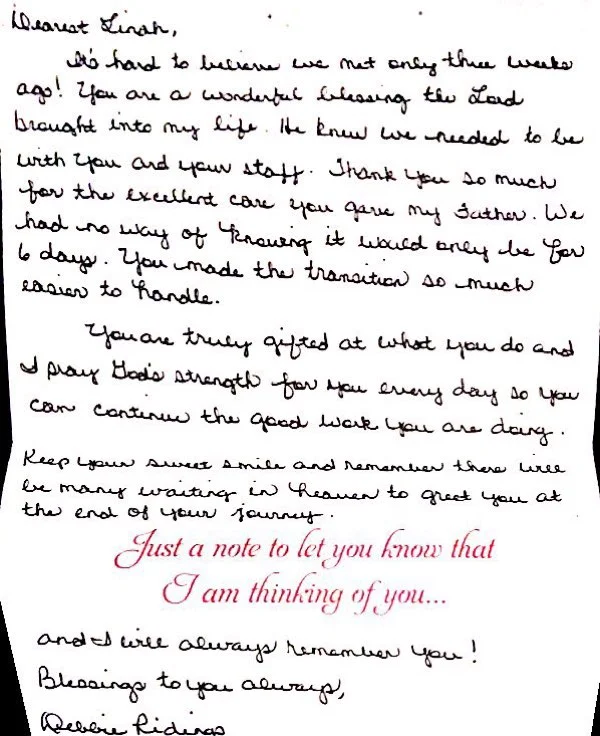 Dearest Linah,
It's hard to believe we met only three weeks
ago! You are a wonderful blessing the Lord
brought into my life. He knew we needed to be
with you and your staff. Thank you so much
for the excellent care you gave my Father. We
had no way of knowing it would only be for
6 days. You made the transition so much
easier to handle.
You are truly gifted at what you do and
I pray God's strength for you every day so you
can continue the good work you are doing.
Keep your sweet smile and remember there will
be many waiting in heaven to greet you at
the end of your journey.
Just a note to let you know that
I am thinking of you...
and I will always remember you!
Blessings to you always,
Debbie Ridings